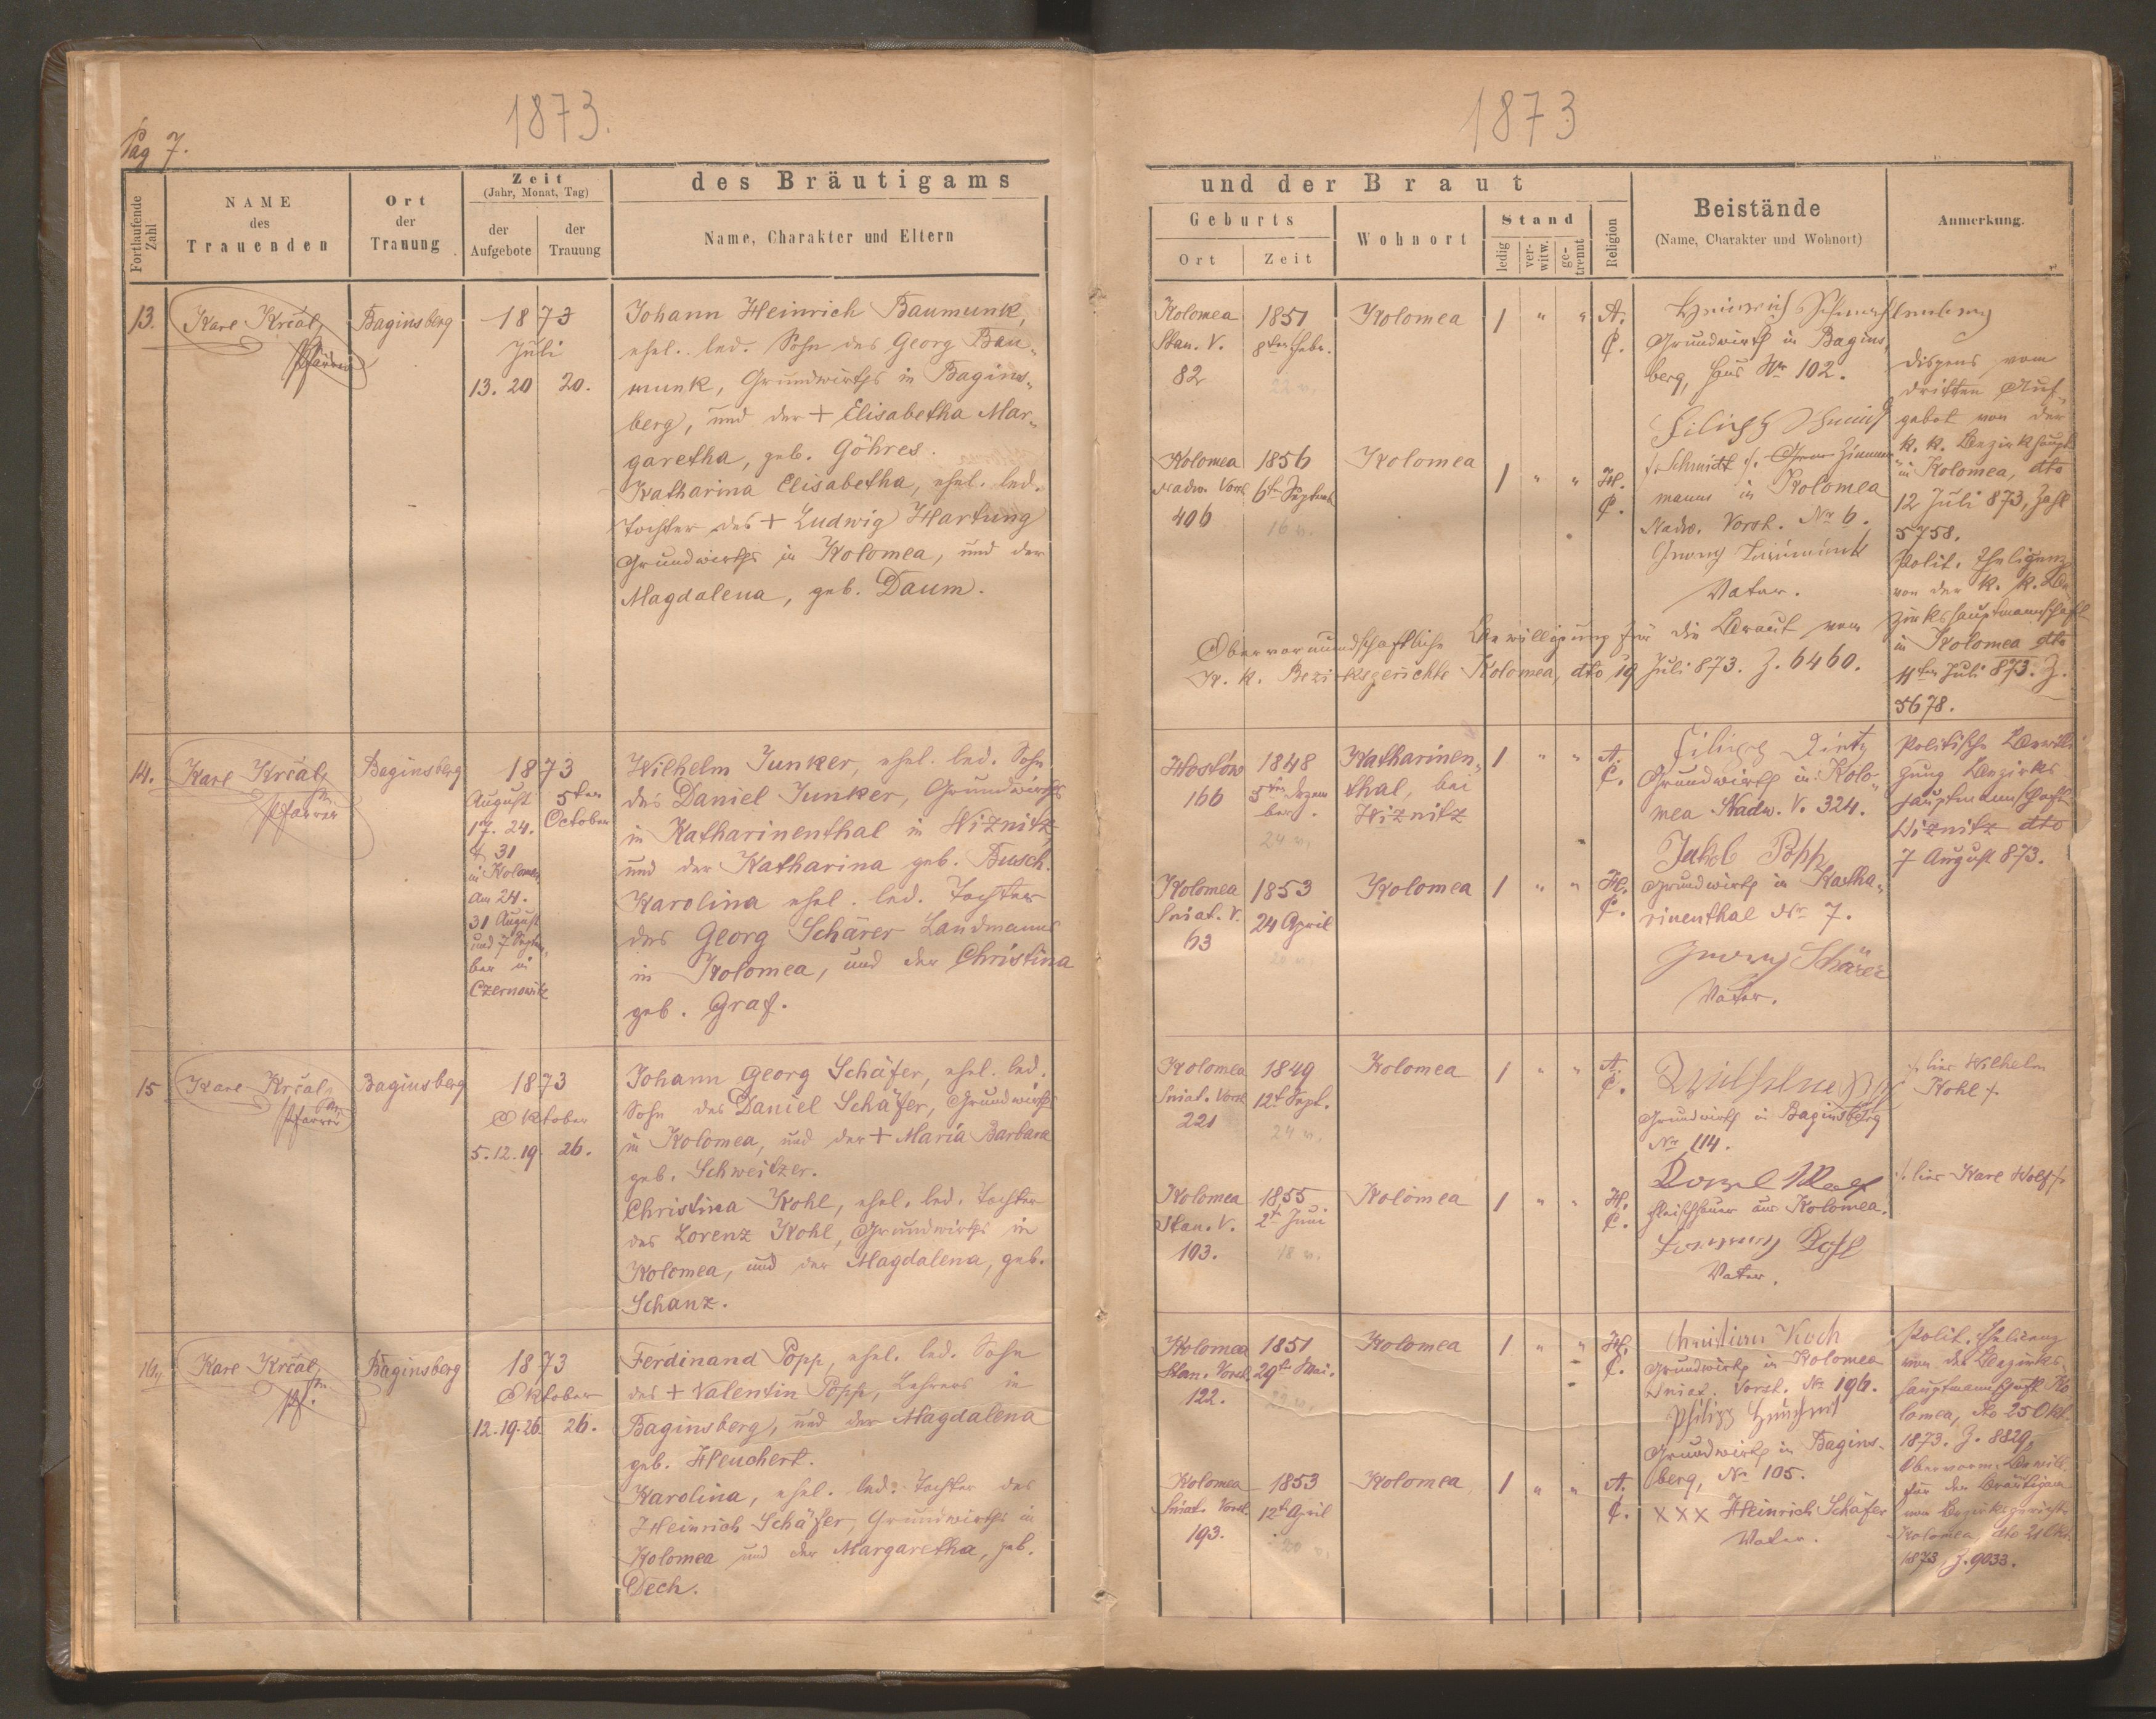 Pag 7.
1873.
Fortlaufende Zahl
NAME
des
Trauenden
Ort
der
Trauung
Zeit
(Jahr, Monat, Tag)
der
Aufgebote
der
Trauung
des Bräutigams
Name, Charakter und Eltern
13.
Karl Krčal
Pfarrer
Baginsberg
1873
Juli
13. 20
20.
Johann Heinrich Baumunk,
ehel. led. Sohn des Georg Bau„
munk, Grundwirths in Bagins„
berg, und der + Elisabetha Mar„
garetha, geb. Göhres.
Katharina Elisabetha, ehel. led.
Tochter des + Ludwig Hartung
Grundwirths in Kolomea, und der
Magdalena, geb. Daum.
14.
Karl Krčal
Pfarrer
Baginsberg
1873
August
17. 24.
& 31
in Kolomea
am 24.
31 August
und 7 Septem„
ber in
Czernowitz
5ten
October
Wilhelm Junker, ehel. led. Sohn
des Daniel Junker, Grundwirths
in Katharinenthal in Wiznitz,
und der Katharina geb. Busch.
Karolina ehel. led. Tochter
des Georg Schärer Landmanns
in Kolomea, und der Christina
geb. Graf.
15
Karl Krčal
Pfarrer
Baginsberg
1873
Oktober
5. 12. 19.
26.
Johann Georg Schäfer, ehel. led.
Sohn des Daniel Schäfer, Grundwirths
in Kolomea, und der + Maria Barbara
geb. Schweitzer.
Christina Kohl, ehel. led. Tochter
des Lorenz Kohl, Grundwirths in
Kolomea, und der Magdalena, geb.
Schanz.
16.
Karl Krčal
Pf.
Baginsberg
1873
Oktober
12. 19. 26.
26.
Ferdinand Popp, ehel. led. Sohn
des + Valentin Popp, Lehrers in
Baginsberg, und der Magdalena
geb. Heuchert.
Karolina, ehel. led. Tochter des
Heinrich Schäfer, Grundwirths in
Kolomea und der Margaretha, geb.
Dech.
1873
und der Braut
Geburts
Ort
Zeit
Wohnort
Stand
ledig
ver-
witw.
ge-
trennt
Religion
Beistände
(Name, Charakter und Wohnort)
Anmerkung.
Kolomea
Stan. V.
82
1851
8ten Febr.
22
Kolomea
1 „ „
A.
C.
Heinrich
Grundwirth in Bagins„
berg, Haus Nr 102.
Kolomea
Nadw. Vorst.
406
1856
6ten Septemb
16
Kolomea
1 „ „
H.
C.
Filipp Schmidt
/: Schmidt :/ Zimmer„
mann in Kolomea
Nadw. Vorst. Nr 6.
Georg Baumunk
Vater.
Dispens vom
dritten Auf„
gebot von der
k. k. Bezirkshaupt
in Kolomea, dto
12 Juli 873, Zahl
5758.
Polit. Ehelizenz
von der k. k. Be„
zirkshauptmannschaft
in Kolomea dto
11ten Juli 873. Z.
5678.
Obervormundschaftliche Bewilligung für die Braut vom
K. k. Bezirksgerichte Kolomea, dto 19 Juli 873. Z. 6460.
Hostów
166
1848
5ten Dezem
ber.
24
Katharinen„
thal, bei
Wiznitz
1 „ „
A.
C.
Filipp Dintz
Grundwirth in Kolo„
mea Nadw. V. 324.
Politische Bewilli
gung Bezirks
hauptmannschaft
Wiznitz dto
7 August 873.
Kolomea
Sniat. V.
63
1853
24 April
20
Kolomea
1 „ „
H.
C.
Jakob Popp
Grundwirth in Katha„
rinenthal Nr 7.
Georg Schärer
Vater.
Kolomea
Sniat. Vorst
221
1849
12t Sept.
24
Kolomea
1 „ „
A.
C.
Wilhelm
Grundwirth in Baginsberg
Nr 114.
/: lies Wilhelm
Kohl :/
Kolomea
Stan. V.
103.
1855
2t Juni
18
Kolomea
1 „ „
H.
C.
Karl Wolf
Fleischhauer aus Kolomea.
Lorenz Kohl
Vater.
/: lies Karl Wolf :/
Kolomea
Stan. Vorst
122.
1851
29ten Mai.
Kolomea
1 „ „
H.
C.
Christian Koch
Grundwirth in Kolomea
Sniat. Vorst. Nr 196.
Philipp Heuchert
Grundwirth in Bagins„
berg, Nr 105.
Kolomea
Sniat. Vorst.
193.
1853
12t April
20
Kolomea
1 „ „
A.
C.
XXX Heinrich Schäfer
Vater.
Polit. Ehelizenz
von der Bezirks„
hauptmannschaft Ko
lomea, dto 25 Okt.
1873. Z. 8829,
Obervorm. Bewill.
für den Bräutigam
vom Bezirksgericht
Kolomea dto 21 Okt.
1873, Z. 9033.